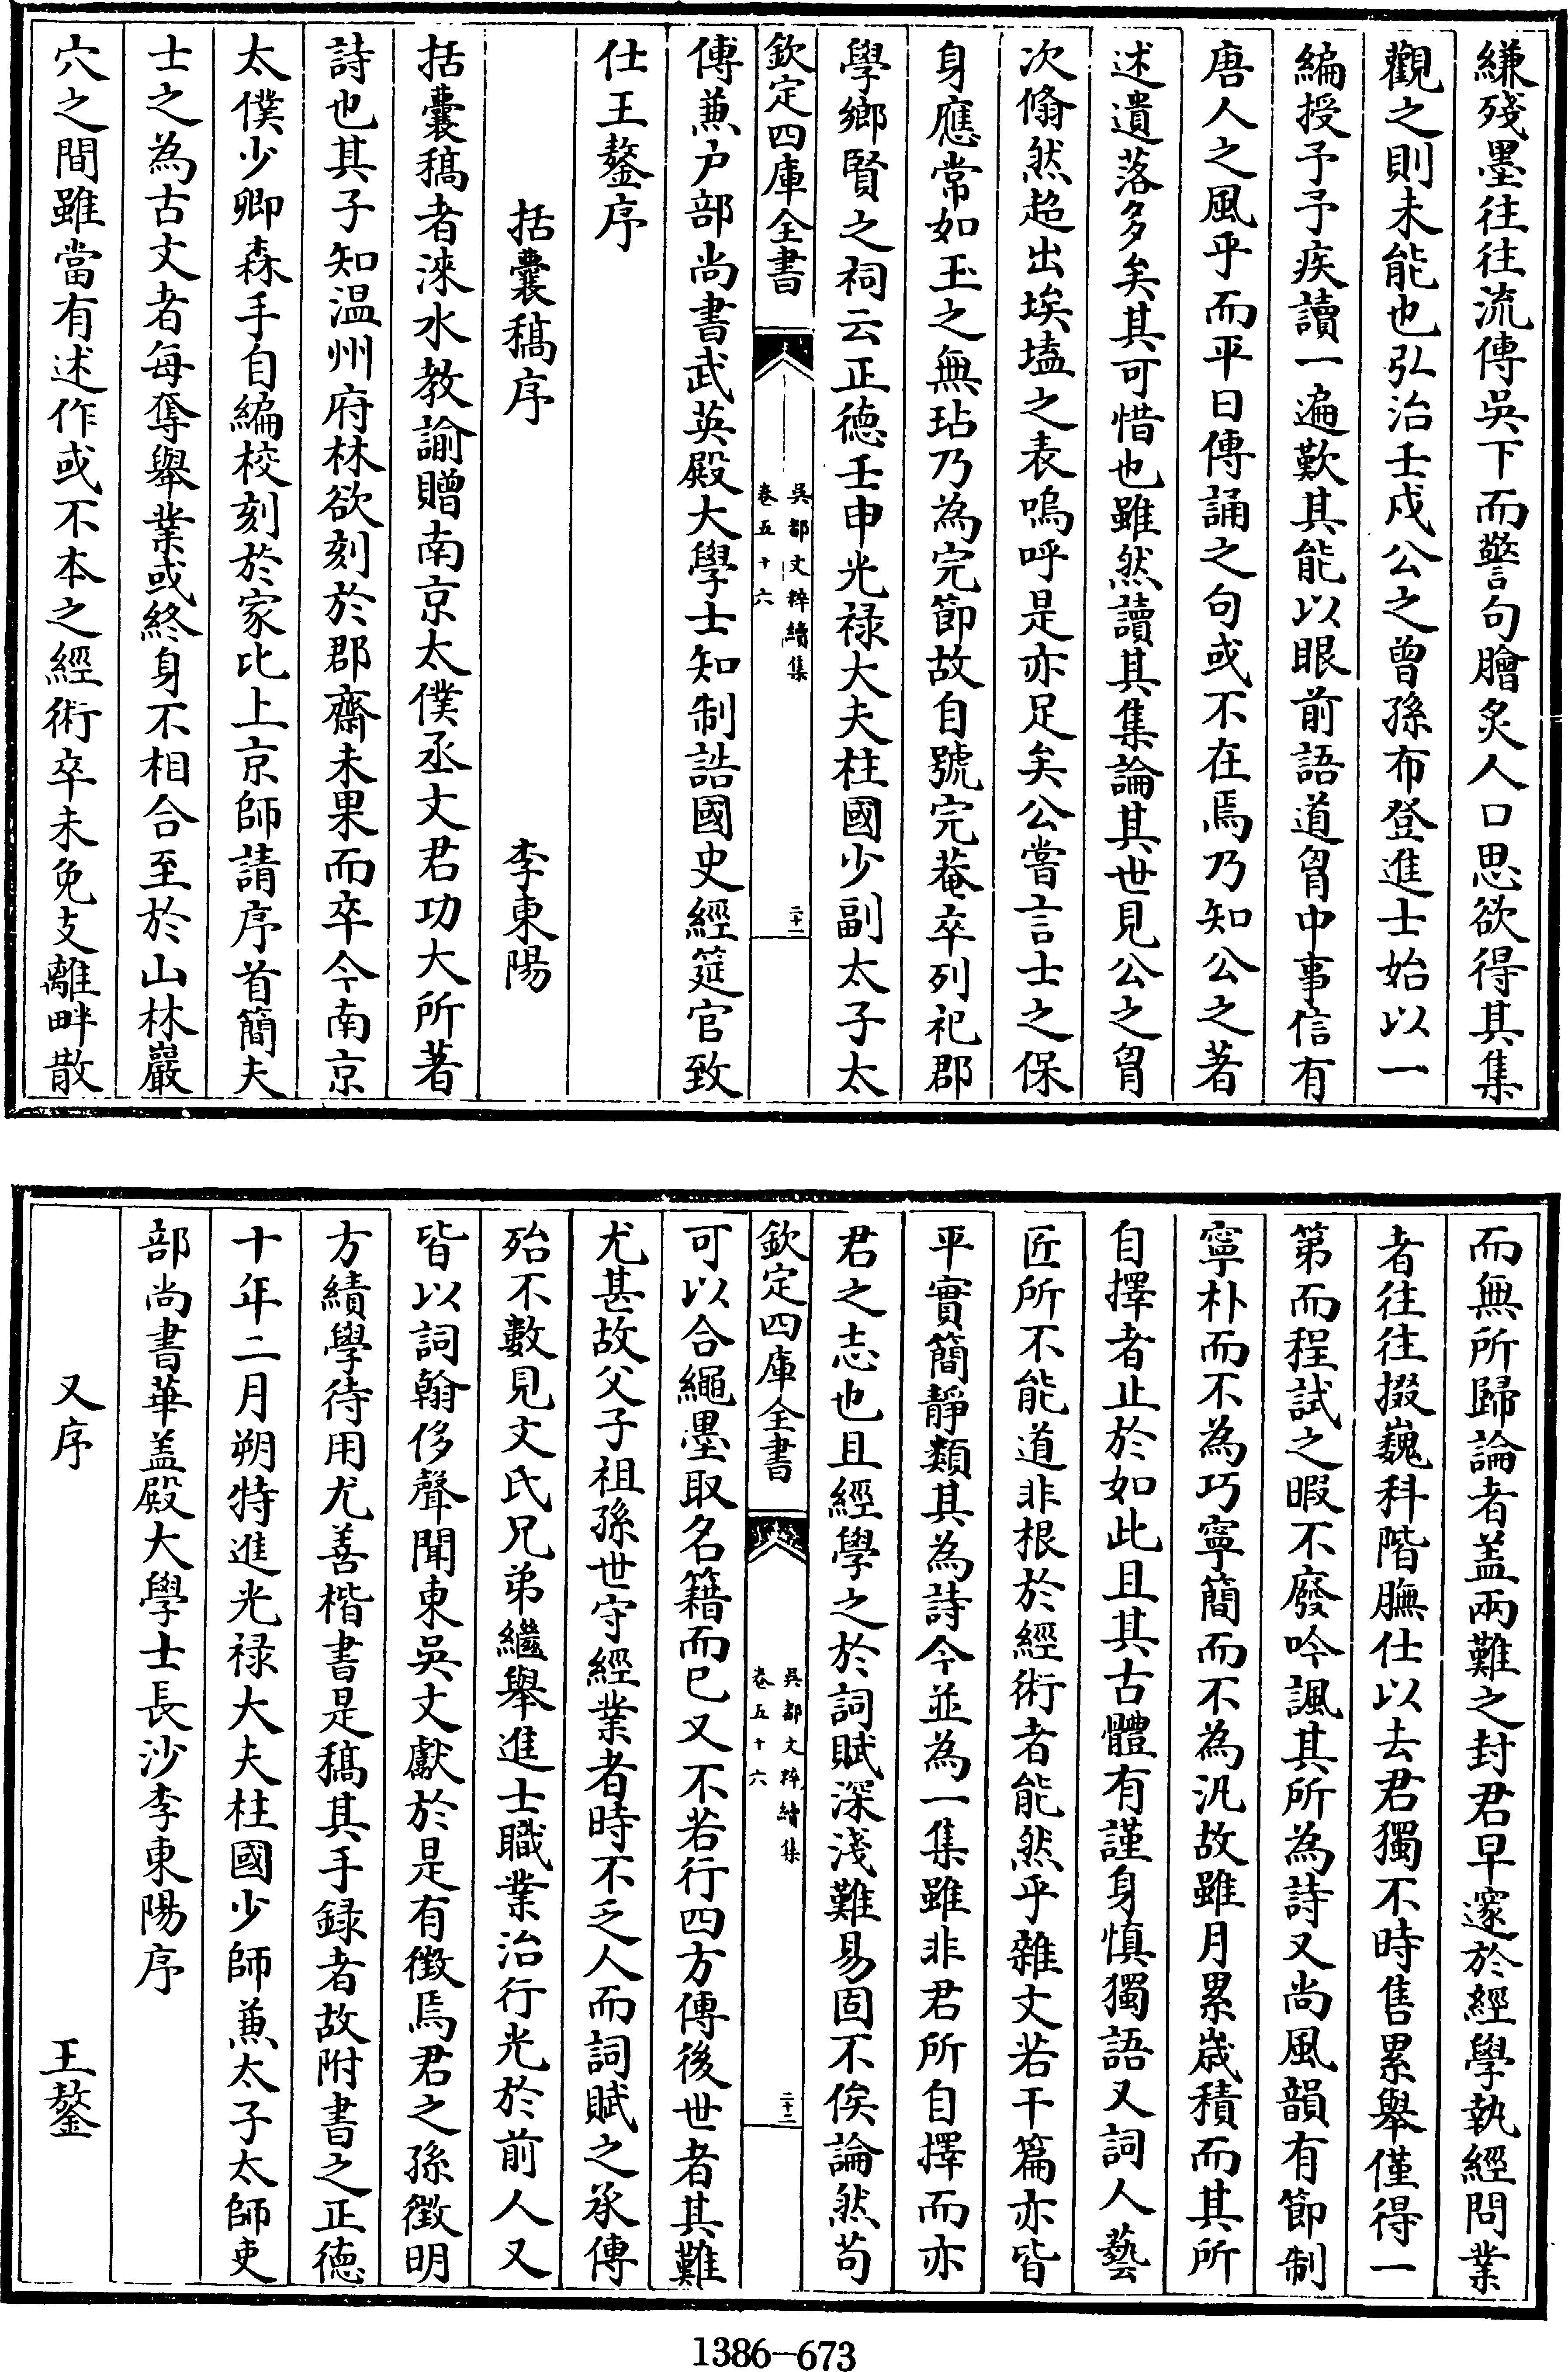 縑殘墨往往流傳吳下而警句膾炙人口思欲得其集
觀之則未能也弘治壬戍公之曾孫布登進士始以一
編授予予疾讀一遍歎其能以眼前語道胷中事信有
唐人之風乎而平日傳誦之句或不在焉乃知公之著
述遺落多矣其可惜也雖然讀其集論其世見公之胷
次翛然超出埃壒之表嗚呼是亦足矣公嘗言士之保
身應常如玉之無玷乃為完節故自號完菴卒列祀郡
學鄉賢之祠云正德壬申光禄大夫柱國少副太子太
欽定四庫全書
吳都文粹續集
卷五十六
二十一
傅兼户部尚書武英殿大學士知制誥國史經筵官致
仕王鏊序
括囊稿序 李東陽
括囊稿者淶水教諭贈南京太僕丞文君功大所著
詩也其子知温州府林欲刻於郡齋未果而卒今南京
太僕少卿森手自編校刻於家比上京師請序首簡夫
士之為古文者每奪舉業或終身不相合至於山林巖
穴之間雖當有述作或不本之經術卒未免支離畔散
而無所歸論者盖兩難之封君早邃於經學執經問業
者往往掇巍科階膴仕以去君獨不時售累舉僅得一
第而程試之暇不廢吟諷其所為詩又尚風韻有節制
寧朴而不為巧寧簡而不為汎故雖月累歲積而其所
自擇者止於如此且其古體有謹身慎獨語又詞人藝
匠所不能道非根於經術者能然乎雜文若干篇亦皆
平實簡靜類其為詩今並為一集雖非君所自擇而亦
君之志也且經學之於詞賦深淺難易固不俟論然苟
欽定四庫全書
吳都文粹續集
卷五十六
二十二
可以合繩墨取名籍而已又不若行四方傳後世者其難
尤甚故父子祖孫世守經業者時不乏人而詞賦之承傳
殆不數見文氏兄弟繼舉進士職業治行光於前人又
皆以詞翰侈聲聞東吳文獻於是有徵焉君之孫徵明
方績學待用尤善楷書是稿其手録者故附書之正德
十年二月朔特進光禄大夫柱國少師兼太子太師吏
部尚書華盖殿大學士長沙李東陽序
又序 王鏊
1386-673